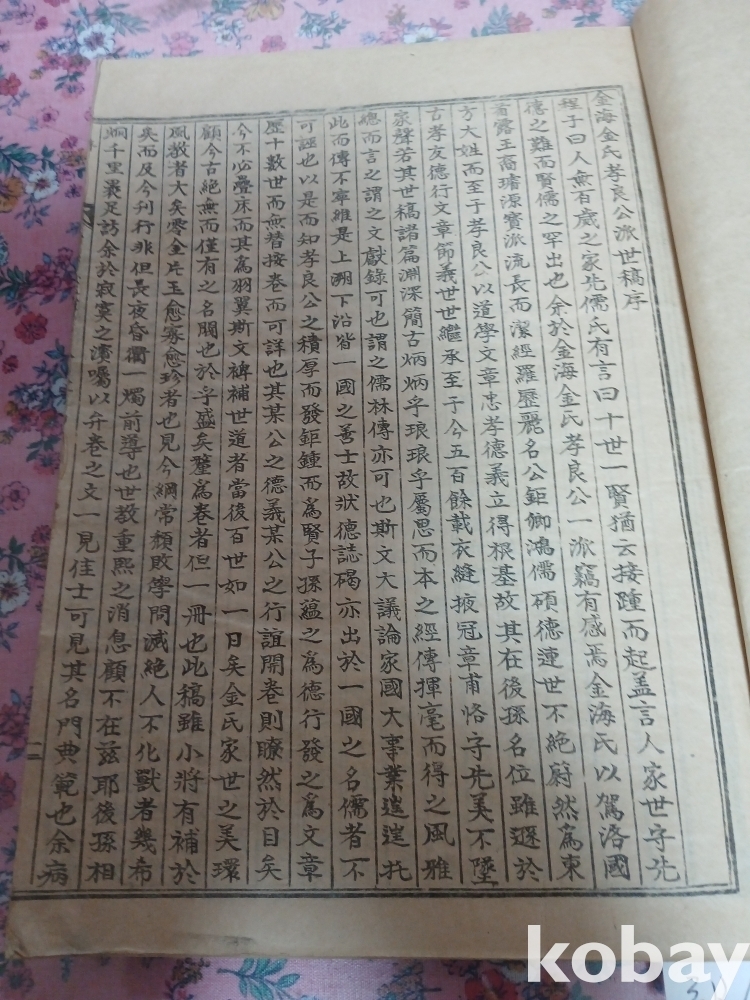 金海金氏孝良公派世稿序
程子曰人無百歲之家先儒氏有言曰十世一賢猶云接踵而起盖言人家世守先
德之難而賢儒之罕出也余於金海金氏孝良公一派竊有感焉金海氏以駕洛國
首露王裔璿源寶派流長而潔經羅歷麗名公鉅卿鴻儒碩德連世不絶蔚然爲東
方大姓而至于孝良公以道學文章忠孝德義立得根基故其在後孫名位雖遜於
古孝友德行文章節義世世繼承至于今五百餘載衣縫掖冠章甫恪守先美不墜
家聲若其世稿諸篇淵深簡古炳炳乎琅琅乎屬思而本之經傳揮毫而得之風雅
總而言之謂之文獻錄可也謂之儒林傳亦可也斯文大議論家國大事業遑遑托
此而傳不寧維是上溯下沿皆一國之善士故狀德誌碣亦出於一國之名儒者不
可誣也以是而知孝良公之積厚而發鉅鍾而爲賢子孫蘊之爲德行發之爲文章
歷十數世而無替接卷而可詳也其某公之德義某公之行誼開卷則瞭然於目矣
今不必疊床而其爲羽翼斯文裨補世道者當後百世如一日矣金氏家世之美環
顧今古絶無而僅有之名閥也於乎盛矣釐爲卷者但一冊也此稿雖小將有補於
風敎者大矣零金片玉愈寡愈珍者也見今綱常頹敗學問滅絶人不化獸者幾希
矣而及今刊行非但長夜昏衢一燭前導也世敎重熙之消息顧不在玆耶後孫相
炯千里裹足訪余於寂寞之濱囑以弁卷之文一見佳士可見其名門典範也余病
二
kobay